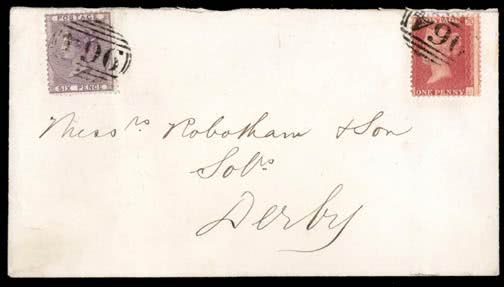 POSTAGE
SIX PENCE
496
ONE PENNY
Messrs Robotham & Son
Solrs
Derby